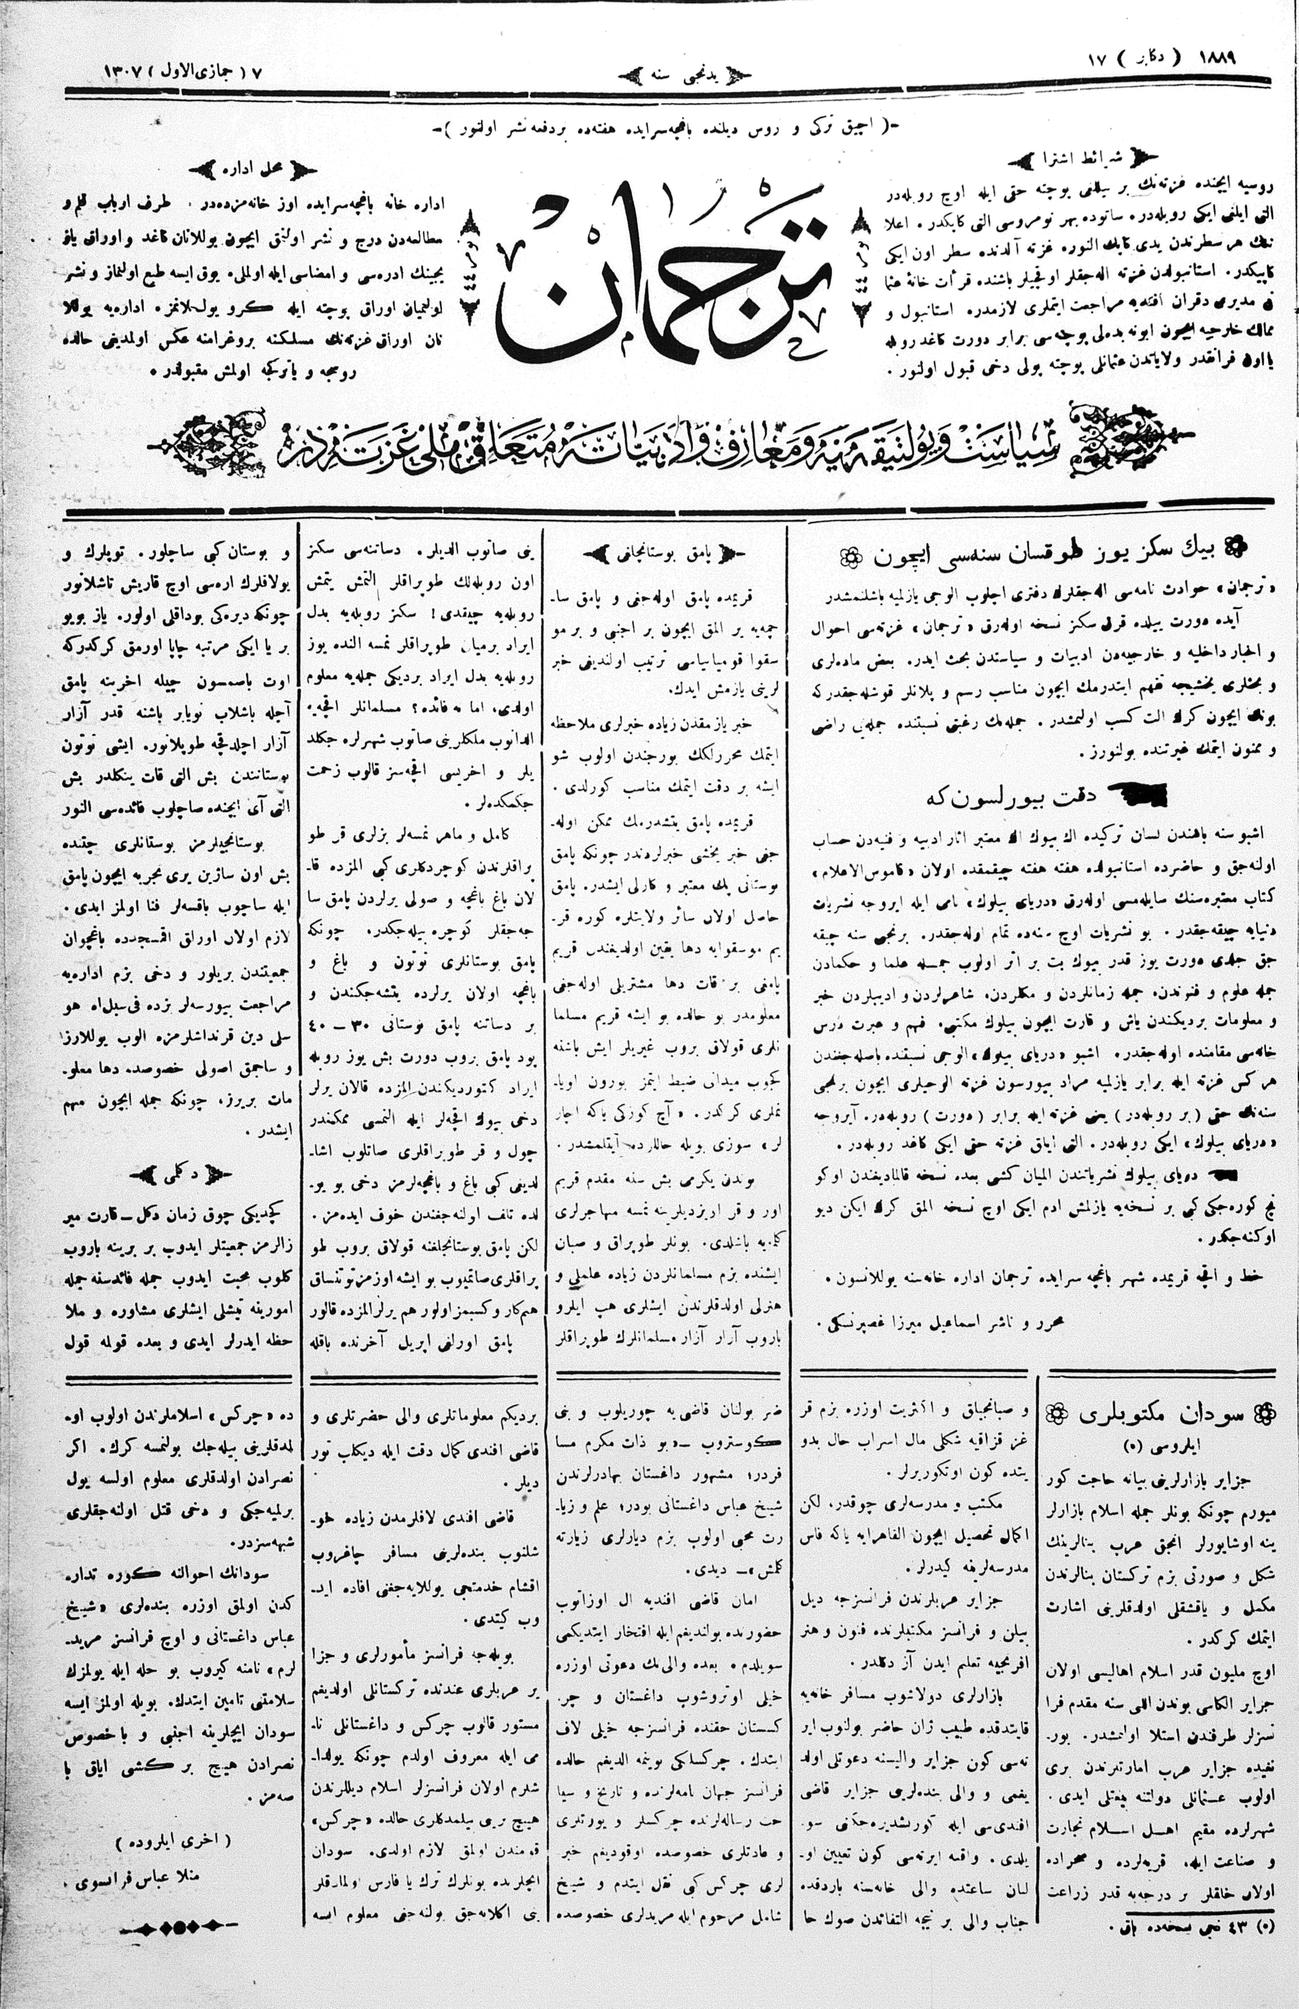 ١٨٨٩ ( دكابر ) ١٧
يدنجى سنه
٧ ( جمازى الاول ) ١٣٠٧
-( آچيق تركى و روس ديلنده باغچه‌سرايده هفته‌ده بردفعه نشر اولنور )-
شرائط اشترا
روسيه ايچنده غزته‌نك بر ييللغى بوچته حقى ايله اوچ روبله‌در
التى ايلغى ايكى روبله‌در. ساتوده بهر نومروسى التى كاپكدر. اعلا
نتك هر سطرندن يدى كاپك النور. غزته آلدنده سطر اون ايكى
كاپيكدر. استانبولدن غزته اله‌جقلر اوقجيلر باشنده قرأت خانهٔ عثما
نى مديرى دقران افنديه مراجعت ايتملرى لازمدر. استانبول و
ممالك خارجيه ايچون ابونه بدلى بوچته سى برابر دورت كاغد روبله
يا اون فرانقدر ولاياتدن عثمانلى بوچته پولى دخى قبول اولنور.
ترجمان
نومرو ٤٤
محل اداره
اداره خانه باغچه‌سرايده اوز خانه‌مزده‌در. طرف ارباب قلم و
مطالعه‌دن درج و نشر اولنق ايچون يوللانان كاغد و اوراق يازو
بجينك ادره‌سى و امضاسى ايله اولملى. يوق ايسه طبع اولنماز و نشر
اولنميان اوراق بوچته ايله كرو يوللانمز. اداره‌يه يوللا
نان اوراق غزته‌نك مسلكنه پروغرامنه عكس اولمديغى حالده
روسجه و ياتركجه اولمش مقبولدر.
سياست و پولتيقه مدنيه و معارف و ادبياته متعلق ملى غزته مزدر
بيك سكز يوز طوقسان سنه‌سى ايچون
«ترجمان» حوادث نامه‌سى اله‌جقلرك دفترى اچلوب الوجى يازلميه باشلنمشدر
آيده دورت ييلده قرق سكز نسخه اوله‌رق «ترجمان» غزته‌سى احوال
و اخبار داخليه و خارجيه‌دن ادبيات و سياستدن بحث ايدر. بعض ماده‌لرى
و بحثلرى يخشيجه تفهم ايتدرمك ايچون مناسب رسم و پلانلر قوشله‌جقدركه
بونك ايچون كرك الت كسب اولنمشدر. جمله‌نك رغبتى نسبتنده جمله‌يى راضى
و ممنون ايتمك غيرتنده بولنورز.
دقت بيورلسون كه
اشبو سنه باهندن لسان تركيده اك بيوك اك معتبر اثار ادبيه و فنيه‌دن حساب
اوله‌جق و حاضرده استانبولده هفته هفته چيقمقده اولان «قاموس الاعلام»
كتاب معتبره‌سنك سايله‌مسى اوله‌رق «درياى بيلوك» نامى ايله ايروجه نشريات
دنيايه چيقه‌جقدر. بو نشريات اوچ سنه‌ده تمام اوله‌جقدر. برنجى سنه چيقه
جق جلدى دورت يوز قدر بيوك بت بر اثر اولوب جمله علما و حكمادن
جمله علوم و فنوندن، جمله زمانلردن و ملكلردن، شاعرلردن و اديبلردن خبر
و معلومات برديكندن ياش و قارت ايچون بيلوك مكتبى. فهم و عبرت درس
خانه‌سى مقامنده اوله‌جقدر. اشبو «درياى بيلوك» الوجى نسبتنده باصله‌جغندن
هر كس غزته ايله برابر يازلميه مراد بيورسون غزته الوجيلرى ايچون برنجى
سنه‌نك حقى (بر روبله‌در) يعنى غزته ايله برابر (دورت) روبله‌در. آيروجه
«درياى بيلوك» ايكى روبله‌در. التى اياق غزته حقى ايكى كاغد روبله‌در.
درياى بيلوك نشرياتندن الميان كشى بعده نسخه قالماديغندن اوكو
نچ كوره‌جكى كبى بر نسخه‌يه يازلمش ادم ايكى اوچ نسخه المق كرك ايكن ديو
اوكنه‌جكدر.
خط و اقچه قريمده شهر باغچه سرايده ترجمان اداره خانه سنه يوللانسون.
محرر و ناشر اسماعيل ميرزا غصپرنسكى.
پامق بوستانجلغى
قريمده پامق اوله‌جغى و پامق سا-
چمه‌يه ير المق ايچون بر اجنبى و بر مو
سقوا قومپانياسى ترتيب اولنديغى خبر
لرينى يازمش ايدك.
خبر يازمقدن زياده خبرلرى ملاحظه
ايتمك محررلكك بورجندن اولوب شو
ايشه بر دقت ايتمك مناسب كورلدى.
قريمده پامق يتشدرمك ممكن اوله-
جغى خبر يخشى خبرلردندر چونكه پامق
بوستانى پك معتبر و كارلى ايشدر. پامق
حاصل اولان سائر ولايتلره كوره قر-
يم موسقوايه دها يقين اولديغندن قريم
پامغى بر قات دها مشتريلى اوله‌جغى
معلومدر بو حالده بو ايشه قريم مسلما
نلرى قولاق بروب غيريلر ايش باشنه
كچوب ميدانى ضبط ايتمز بورون اويا-
نملرى كركدر. «آچ كوزكى ياكه اچار
لر» سوزى بويله حاللرده ايقلمشدر.
بوندن يكرمى بش سنه مقدم قريم
اور و قر اريزديلرينه نمسه مهاجرلرى
كلمه‌يه باشلدى. بونلر طوپراق و صبان
ايشنده بزم مسلمانلردن زياده علملى و
هنرلى اولدقلرندن ايشلرى هپ ايلرو
باروب آرار آزار مسلمانلرك طوپراقلر
ينى صاتوب الديلر. دساتنه‌سى سكز
اون روبله‌لك طوپراقلر التمش يتمش
روبله‌يه چيقدى! سكز روبله‌يه بدل
ايراد برميان طوپراقلر نمسه النده يوز
روبله‌يه بدل ايراد برديكى جمله‌يه معلوم
اولدى، اما نه فائده؟ مسلمانلر اقچه‌يه
الدانوب ملكلرينى صاتوب شهرلره چكلد
يلر و اخريسى اقچه‌سز قالوب زحمت
چكمكده‌لر.
كامل و ماهر نمسه‌لر بزلرى قر طو
پراقلرندن كوچردكلرى كبى المزده قا-
لان باغ باغچه و صولى يرلردن پامق سا
چه‌جقلر كوچره بيله‌جكدر. چونكه
پامق بوستانلرى توتون و باغ و
باغچه اولان يرلرده يتشه‌جكندن و
بر دساتنه پامق بوستانى ٣٠-٤٠
پود پامق بروب دورت بش يوز روبله
ايراد كتورديكندن المزده قالان يرلر
دخى بيوك اقچه‌لر ايله النمسى ممكندر
چول و قر طوپراقلرى صاتلوب اشا-
لديغى كبى باغ و باغچه‌لرمز دخى بو يو-
لده تلف اولنه‌جغندن خوف ايده‌مز.
لكن پامق بوستانجلغنه قولاق بروب طو
پراقلرى صاتميوب بو ايشه اوزمز توتنساق
هم كار و كسبمز اولور هم يرلر المزده قالور
پامق اورلغى اپريل آخرنده باقله
و بوستان كبى ساچلور. توپلرك و
يولاقلرك اره‌سى اوچ قاريش تاشلانور
چونكه ديره‌كى بوداقلى اولور. ياز بويو
بر يا ايكى مرتبه چاپا اورمق كركدركه
اوت باصمسون چيله اخرينه پامق
آچله باشلاب نويابر باشنه قدر آزار
آزار اچلدقچه طوپلانور. ايشى توتون
بوستانندن بش التى قات ينكلدر بش
التى آى ايچنده صاچلوب فائده‌سى النور
بوستانجيلرمز بوستانلرى چتنده
بش اون ساژين يرى تجربه ايچون پامق
ايله ساچوب باقسه‌لر فنا اولمز ايدى.
لازم اولان اوراق اقمسجدده باغچوان
جمعيتندن بريلور و دخى بزم اداره‌يه
مراجعت بيورسه‌لر بزده فى سبل‌اه هو
سلى دين قرنداشلرمزه الوب يوللارز
و ساچمق اصولى خصوصده دها معلو-
مات بريرز، چونكه جمله ايچون مهم
ايشدر.
دكلمى
كچديكى چوق زمان دكل - قارت مير
زالرمز جمعيتلر ايدوب بر برينه باروب
كلوب محبت ايدوب جمله فائده‌سنه جمله
امورينه تيشلى ايشلرى مشاوره و ملا
حظه ايدرلر ايدى و بعده قوله قول
سودان مكتوبلرى
ايلروسى (٥)
جزاير بازارلرينى بيانه حاجت كور
ميورم چونكه بونلر جمله اسلام بازارلر
ينه اوشايورلر انجق عرب بنالرينك
شكل و صورتى بزم تركستان بنالرندن
مكمل و ياقشقلى اولدقلرينى اشارت
ايتمك كركدر.
اوچ مليون قدر اسلام اهاليسى اولان
جزاير الكاسى بوندن اللى سنه مقدم فرا
نسزلر طرفندن استلا اولنمشدر. بور-
نغيده جزاير عرب امارتلرندن برى
اولوب عثمانلى دولتنه ييغتلى ايدى.
شهرلرده مقيم اهل اسلام تجارت
و صناعت ايله، قريه‌لرده و صحراده
اولان خلقلر بر درجه‌يه قدر زراعت
(٥) ٤٣ نجى نسخه‌ده باق.
و صبانجيلق و اكثريت اوزره بزم قر
غز قزاقيه شكللى مال اسراب حال بدو
يتده كون اوتكوررلر.
مكتب و مدرسه‌لرى چوقدر، لكن
اكمال تحصيل ايچون القاهرايه ياكه فاس
مدرسه‌لرينه كيدرلر.
جزاير عربلرندن فرانسزجه ديل
بيلن و فرانسز مكتبلرنده فنون و هنر
افرنجيه تعليم ايدن آز دكلدر.
بازارلرى دولاشوب مسافر خانه‌يه
قايتدقده طبيب ژان حاضر بولنوب اير
ته‌سى كون جزاير واليسنه دعوتلى اولد
يغمى و والى بنده‌لريمى جزاير قاضى
افنديسى ايله كورشديره‌جكنى سو-
يلدى. واقعه ايرته‌سى كون تعيين او-
لنان ساعتده والى خانه‌سنه باردقده
جناب والى بر نيچه التفاتدن صوك حا
ضر بولنان قاضى‌يه چوريلوب و بنى
كوستروب - «بو ذات مكرم مسا
فردر؛ مشهور داغستان بهادرلرندن
شيخ عباس داغستانى بودر؛ علم و زيا-
رت محبى اولوب بزم ديارلرى زيارته
كلمش» - ديدى.
امان قاضى افنديه ال اوزاتوب
حضورنده بولنديغم ايله افتخار ايتديكمى
سويلدم. بعده والى‌نك دعوتى اوزره
خيلى اوتروشوب داغستان و چر-
كستان حقنده فرانسزجه خيلى لاف
ايتدك. چركسلكى بوينمه الديغم حالده
فرانسز جهان نامه‌لرنده و تاريخ و سيا
حت رساله‌لرنده چركسلر و يورتلرى
و عادتلرى خصوصده اوقوديغم خبر-
لرى چركس كبى نقل ايتدم و شيخ
شامل مرحوم ايله مريدلرى خصوصده
برديكم معلوماتلرى والى حضرتلرى و
قاضى افندى كمال دقت ايله ديكلب تور
ديلر.
قاضى افندى لافلرمدن زياده خو-
شلنوب بنده‌لرينى مسافر چاغروب
اقشام خدمتجى يوللايه‌جغنى افاده ايد-
وب كيتدى.
بويله‌جه فرانسز مأمورلرى و جزا
ير عربلرى عندنده تركستانلى اولديغم
مستور قالوب چركس و داغستانلى نا-
مى ايله معروف اولدم چونكه يولدا-
شلرم اولان فرانسزلر اسلام ديللرندن
هيچ برينى بيلمدكلرى حالده «چركس»
قومندن اولمق لازم اولدى. سودان
ايچلرنده بونلرك ترك يا فارس اولمادقلر
ينى اكلانه‌جق بولنه‌جغى معلوم ايسه
ده «چركس» اسلاملرندن اولوب او-
لمدقلرينى بيله‌جك بولنمسه كرك. اكر
نصرادن اولدقلرى معلوم اولسه يول
برلميه‌جكى و دخى قتل اولنه‌جقلرى
شبهه‌سزدر.
سودانك احوالنه كوره تداره
كدن اولمق اوزره بنده‌لرى «شيخ
عباس داغستانى و اوچ فرانسز مريد-
لرم» نامنه كيروب بو حله ايله يولمزك
سلامتى تامين ايتدك. بويله اولمز ايسه
سودان ايچلرينه اجنبى و باخصوص
نصرادن هيچ بر كشى اياق با
صه‌مز.
( اخرى ايلروده )
منلا عباس فرانسوى.